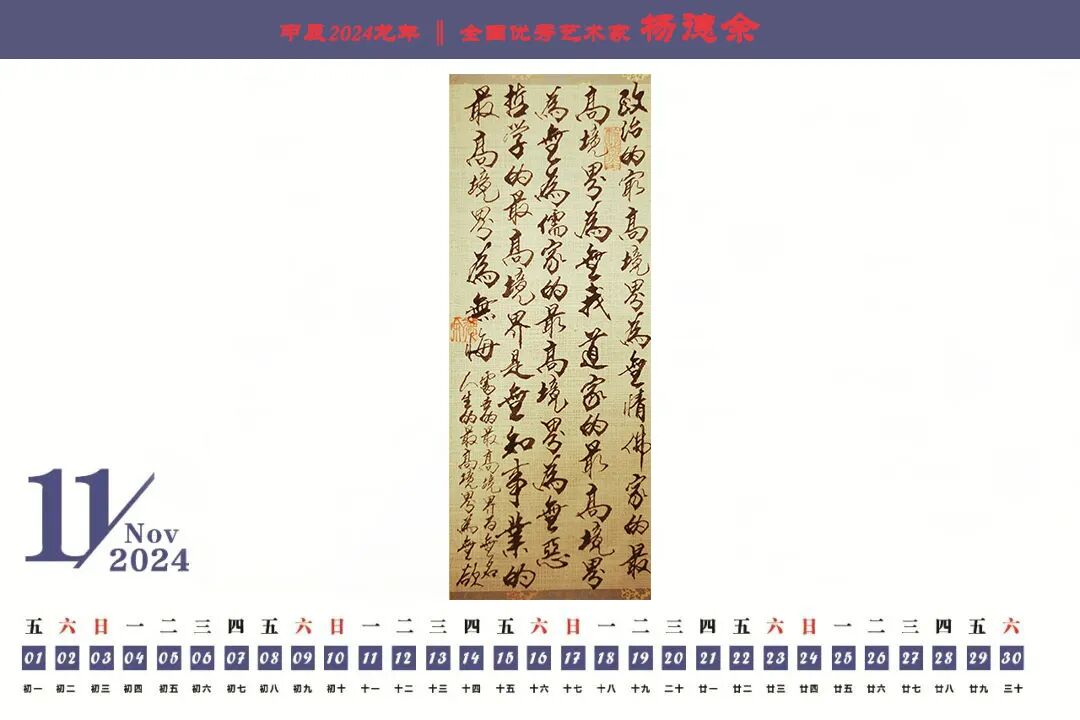 甲辰2024龙年 ‖ 全国优秀艺术家 杨德余
政治的最高境界為無情佛家的最
高境界為無我道家的最高境界
為無為儒家的最高境界為無惡
哲学的最高境界是無知事業的
最高境界為無悔
的最高境界為無名
人生的最高境界為無欲
11
Nov
2024
五 六 日 一 二 三 四 五 六 日 一 二 三 四 五 六 日 一 二 三 四 五 六 日 一 二 三 四 五 六
01 02 03 04 05 06 07 08 09 10 11 12 13 14 15 16 17 18 19 20 21 22 23 24 25 26 27 28 29 30
初一 初二 初三 初四 初五 初六 初七 初八 初九 初十 十一 十二 十三 十四 十五 十六 十七 十八 十九 二十 廿一 廿二 廿三 廿四 廿五 廿六 廿七 廿八 廿九 三十